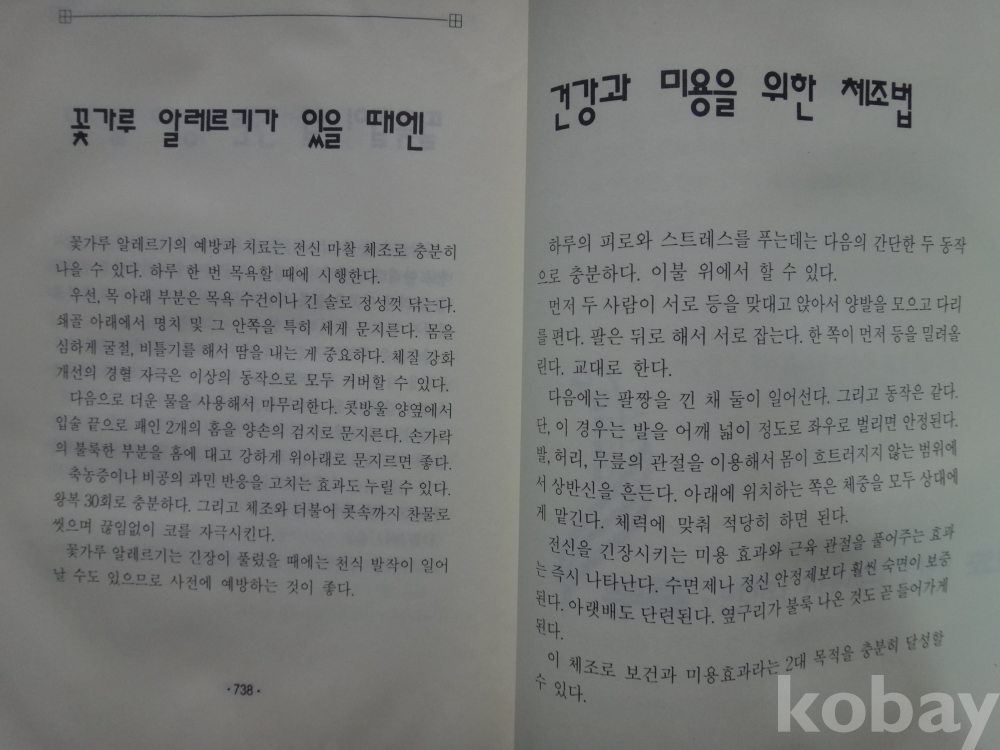 꽃가루 알레르기가 있을 때엔
꽃가루 알레르기의 예방과 치료는 전신 마찰 체조로 충분히
나을 수 있다. 하루 한 번 목욕할 때에 시행한다.
우선, 목 아래 부분은 목욕 수건이나 긴 솔로 정성껏 닦는다.
쇄골 아래에서 명치 및 그 안쪽을 특히 세게 문지른다. 몸을
심하게 굴절, 비틀기를 해서 땀을 내는 게 중요하다. 체질 강화
개선의 경혈 자극은 이상의 동작으로 모두 커버할 수 있다.
다음으로 더운 물을 사용해서 마무리한다. 콧방울 양옆에서
입술 끝으로 패인 2개의 홈을 양손의 검지로 문지른다. 손가락
의 불룩한 부분을 홈에 대고 강하게 위아래로 문지르면 좋다.
축농증이나 비공의 과민 반응을 고치는 효과도 누릴 수 있다.
왕복 30회로 충분하다. 그리고 체조와 더불어 콧속까지 찬물로
씻으며 끊임없이 코를 자극시킨다.
꽃가루 알레르기는 긴장이 풀렸을 때에는 천식 발작이 일어
날 수도 있으므로 사전에 예방하는 것이 좋다.
· 738 ·
건강과 미용을 위한 체조법
하루의 피로와 스트레스를 푸는데는 다음의 간단한 두 동작
으로 충분하다. 이불 위에서 할 수 있다.
먼저 두 사람이 서로 등을 맞대고 앉아서 양발을 모으고 다리
를 편다. 팔은 뒤로 해서 서로 잡는다. 한 쪽이 먼저 등을 밀려올
린다. 교대로 한다.
다음에는 팔짱을 낀 채 둘이 일어선다. 그리고 동작은 같다.
단, 이 경우는 발을 어깨 넓이 정도로 좌우로 벌리면 안정된다.
발, 허리, 무릎의 관절을 이용해서 몸이 흐트러지지 않는 범위에
서 상반신을 흔든다. 아래에 위치하는 쪽은 체중을 모두 상대에
게 맡긴다. 체력에 맞춰 적당히 하면 된다.
전신을 긴장시키는 미용 효과와 근육 관절을 풀어주는 효과
는 즉시 나타난다. 수면제나 정신 안정제보다 훨씬 숙면이 보증
된다. 아랫배도 단련된다. 옆구리가 불룩 나온 것도 곧 들어가게
된다.
이 체조로 보건과 미용효과라는 2대 목적을 충분히 달성할
수 있다.
kobay